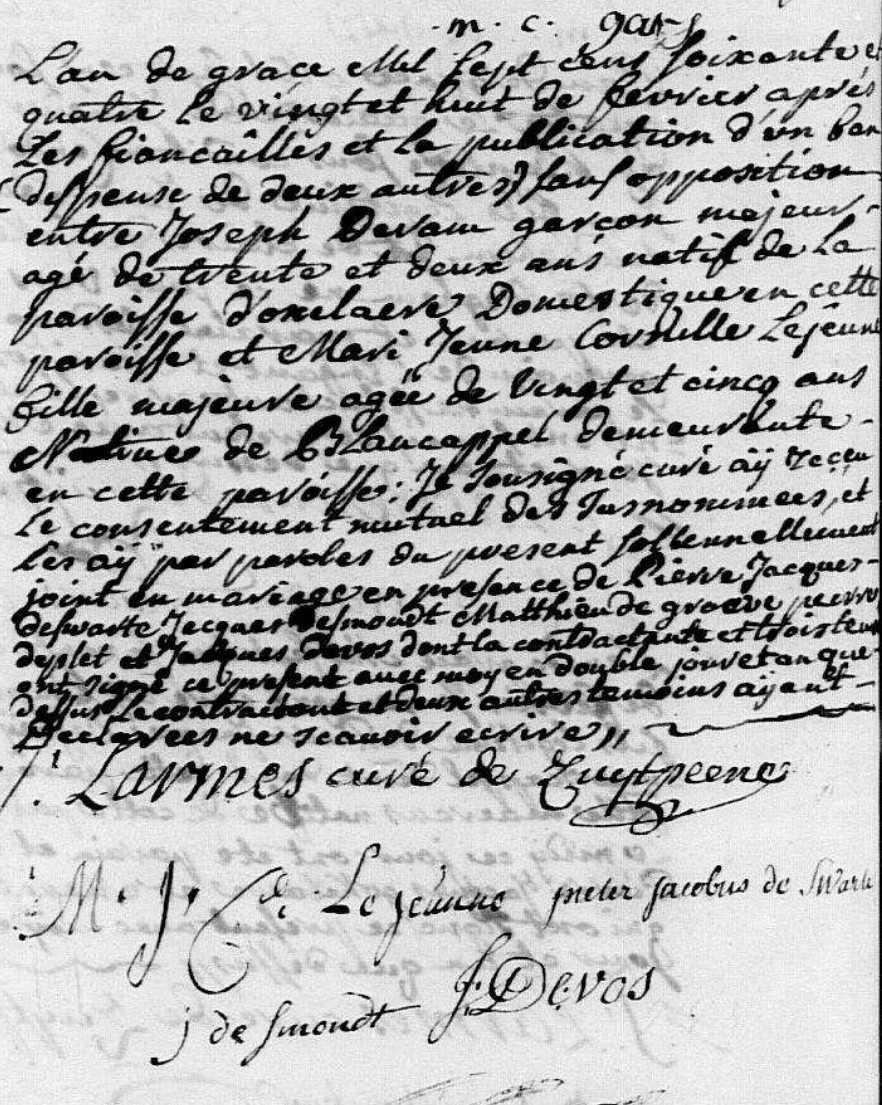 m. c. gars
L'an de grace Mil sept cens soixante et
quatre le vingt et huit de fevrier après
Les fiancailles et la publication d'un ban
(dispense de deux autres) sans opposition
entre Joseph Devam garçon majeur
agé de trente et deux ans natif de La
paroisse d'oxelaere Domestique en cette
paroisse et Mari Jeune Cornille Lejeune
fille majeure agée de Vingt et cinq ans
Native de Blancappel demeurante
en cette paroisse: Je sousigné curé aÿ receu
Le consentement mutuel des susnommees, et
Les aÿ par paroles du present sollennellement
joint en mariage en presence de Pierre Jacques
deswarte Jacques desmoudt Matthieu de groeve pierre
deplet et Jacques devos dont la contractante et trois tem
ont signé ce present avec moy en double jour et an que
dessus Le contractant et deux autres temoins aÿant
Declarees ne scavoir ecrire,,
Larmes curé de Zuytpeene
M. J. C. Le jeunne pieter jacobus de Swarte
J. Devos
j de smoudt